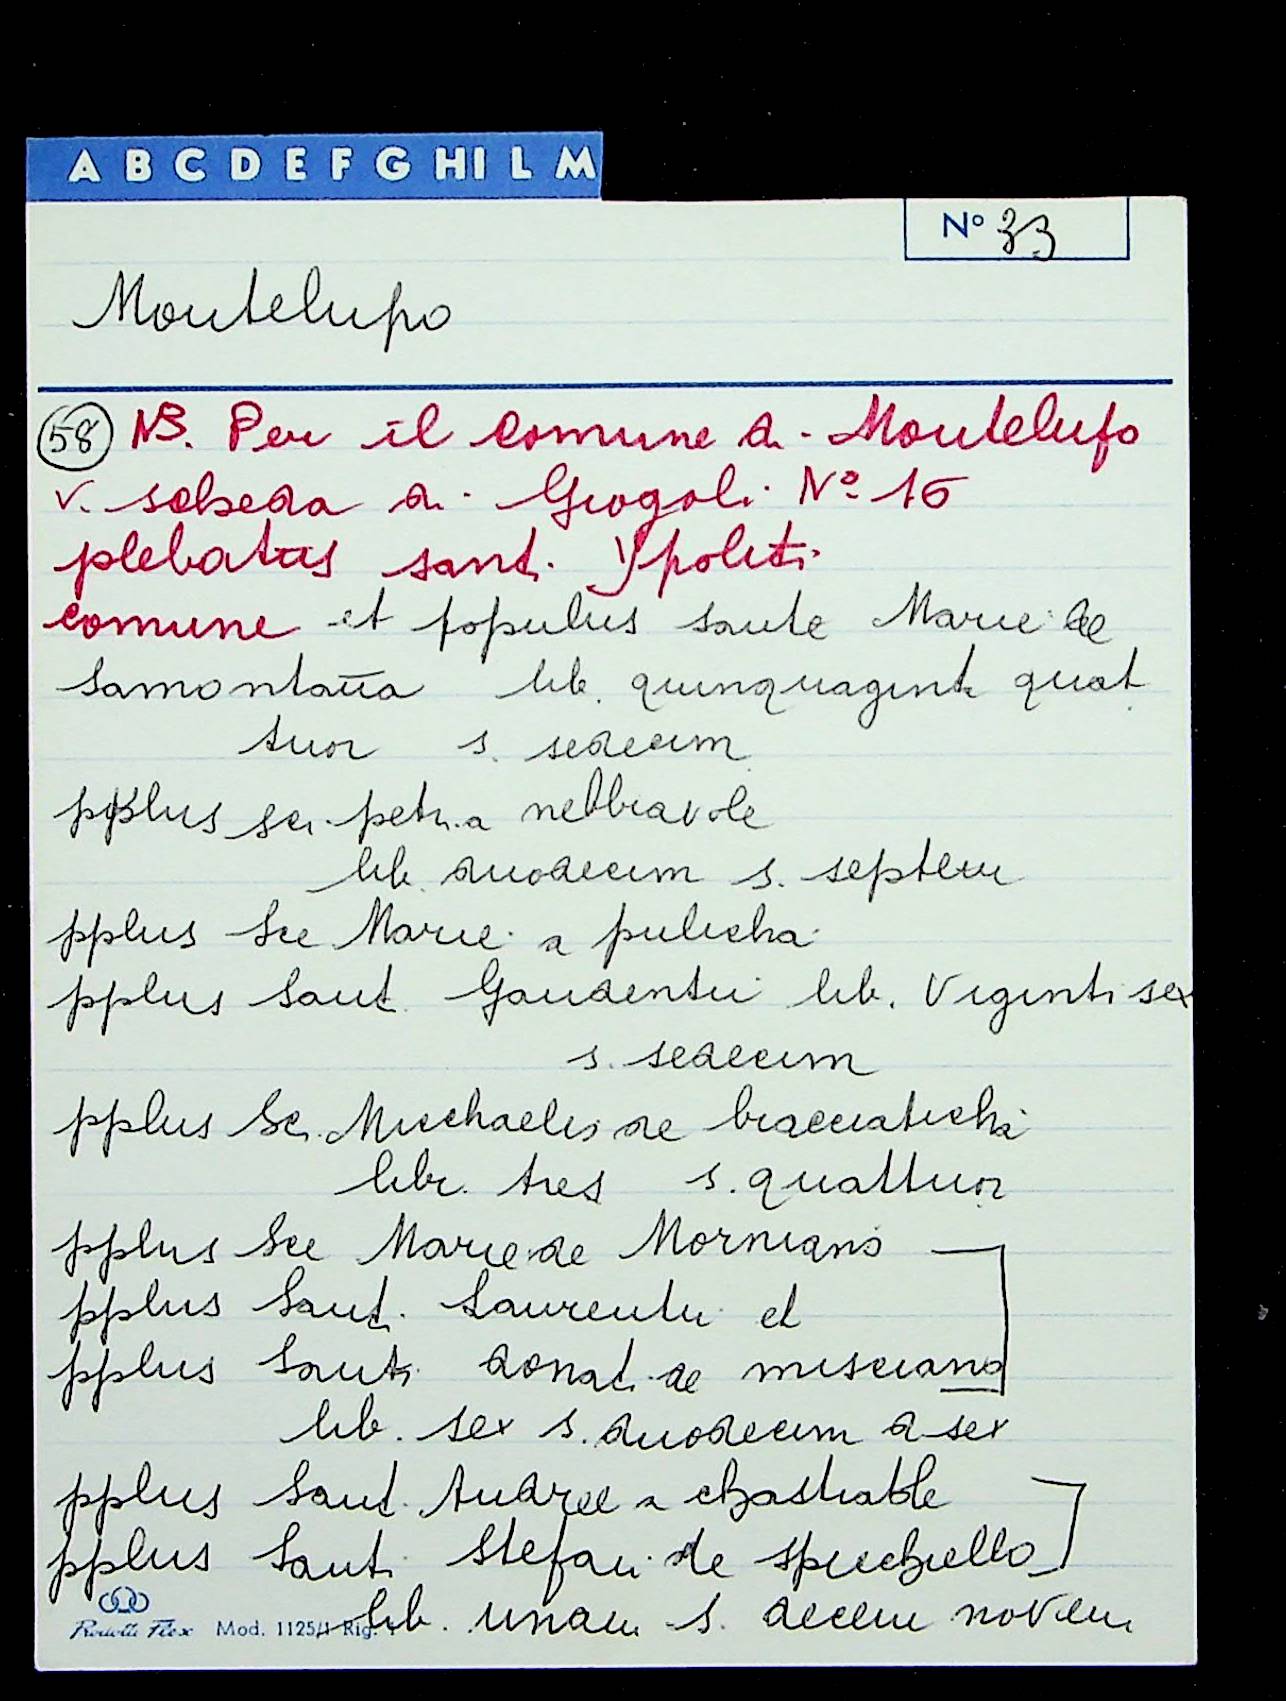 A B C D E F G HI L M
N° 33
Montelupo
58 NB. Per il comune di Montelupo
v. scheda di Giogoli N° 16
plebatus santi Ypoliti
comune et populus sante Marie de
Samontana lib. quinquaginta quat
tuor s. sedecim
pplus sci petri a nebbiavole
lib. duodecim s. septem
pplus Sce Marie a pulicha
pplus Santi Gaudentii lib. Viginti sex
s. sedecim
pplus Sci Micchaelis de bracciaticha
libr. tres s. quattuor
pplus Sce Marie de Morniano
pplus Santi Laurentii et
pplus Santi donati de misciano
lib. sex s. duodecim d sex
pplus Santi Andree a
pplus Santi Stefani de
lib. unam s. decem novem
Mod. 1125/1 Rig. 1